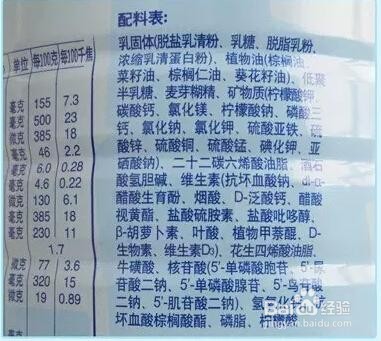 配料表:
乳固体(脱盐乳清粉、乳糖、脱脂乳粉、
浓缩乳清蛋白粉)、植物油(棕榈油、
菜籽油、棕榈仁油、葵花籽油)、低聚
半乳糖、麦芽糊精、矿物质(柠檬酸钾、
碳酸钙、氯化镁、柠檬酸钠、磷酸三
钙、氯化钠、氯化钾、硫酸亚铁、硫
酸锌、硫酸铜、硫酸锰、碘化钾、亚
硒酸钠)、二十二碳六烯酸油脂、酒石
酸氢胆碱、维生素(抗坏血酸钠、dl-α-
醋酸生育酚、烟酸、D-泛酸钙、醋酸
视黄酯、盐酸硫胺素、盐酸吡哆醇、
β-胡萝卜素、叶酸、植物甲萘醌、D-
生物素、维生素D₃)、花生四烯酸油脂、
牛磺酸、核苷酸(5'-单磷酸胞苷、5'-尿
苷酸二钠、5'-单磷酸腺苷、5'-鸟苷酸
二钠、5'-肌苷酸二钠)、氢氧化钙、
坏血酸棕榈酸酯、磷脂、柠檬酸
单位 每100克 每100千焦
毫克 155 7.3
毫克 500 23
微克 385 18
毫克 46 2.2
毫克 6.0 0.28
毫克 4.6 0.22
微克 130 6.1
毫克 385 18
毫克 230 11
1.7
微克 77 3.6
毫克 320 15
微克 19 0.89
Baidu 经验
jingyan.baidu.com